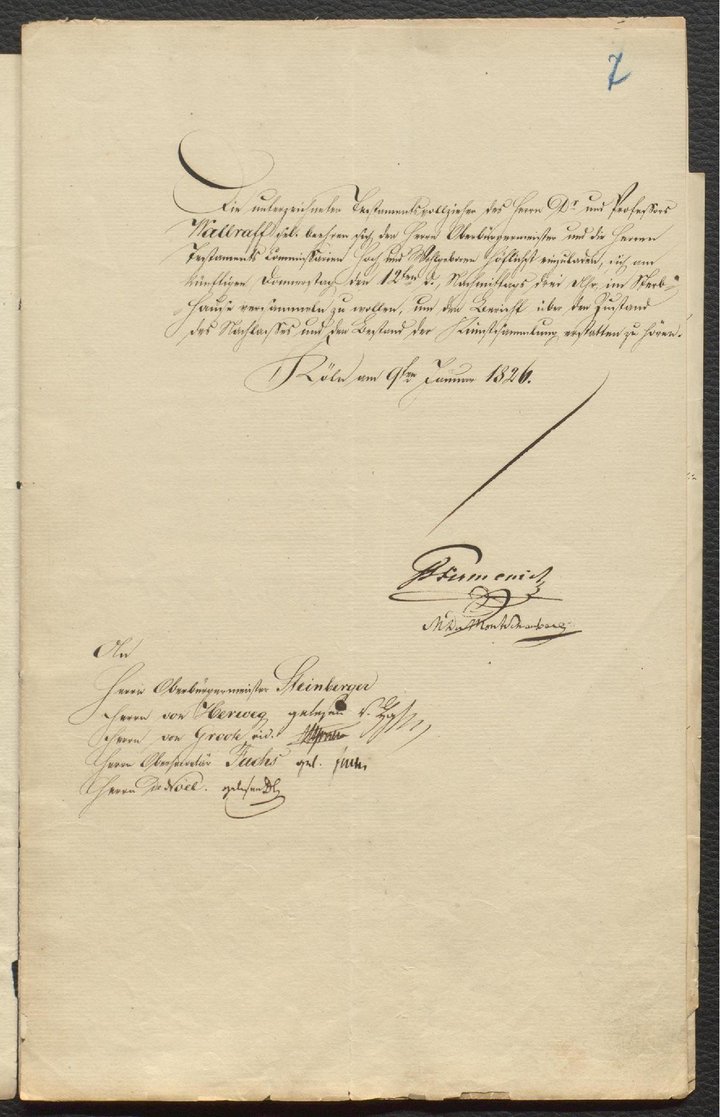 7
Die unterzeichneten Testamentsvollzieher des Herrn Dr. und Professors
Wallraff sel. beehren sich den Herrn Oberbürgermeister und die Herren
Testaments Commissarien Hoch und Wohlgeboren höflichst einzuladen, sich am
künftigen Donnerstag den 12ten d., Nachmittags drei Uhr, im Sterb-
hause versammeln zu wollen, um den Bericht über den Zustand
des Nachlasses und den Bestand der Kunstsammlung erstatten zu hören.
Köln am 9ten Januar 1826.
Firmenich
DuMont
An
Herrn Oberbürgermeister Steinberger
Herrn von Herweg gelesen v. Hg
Herrn von Groote
Herrn Obersecretär Fuchs gel. Fuchs
Herrn De Noël. gelesen DN